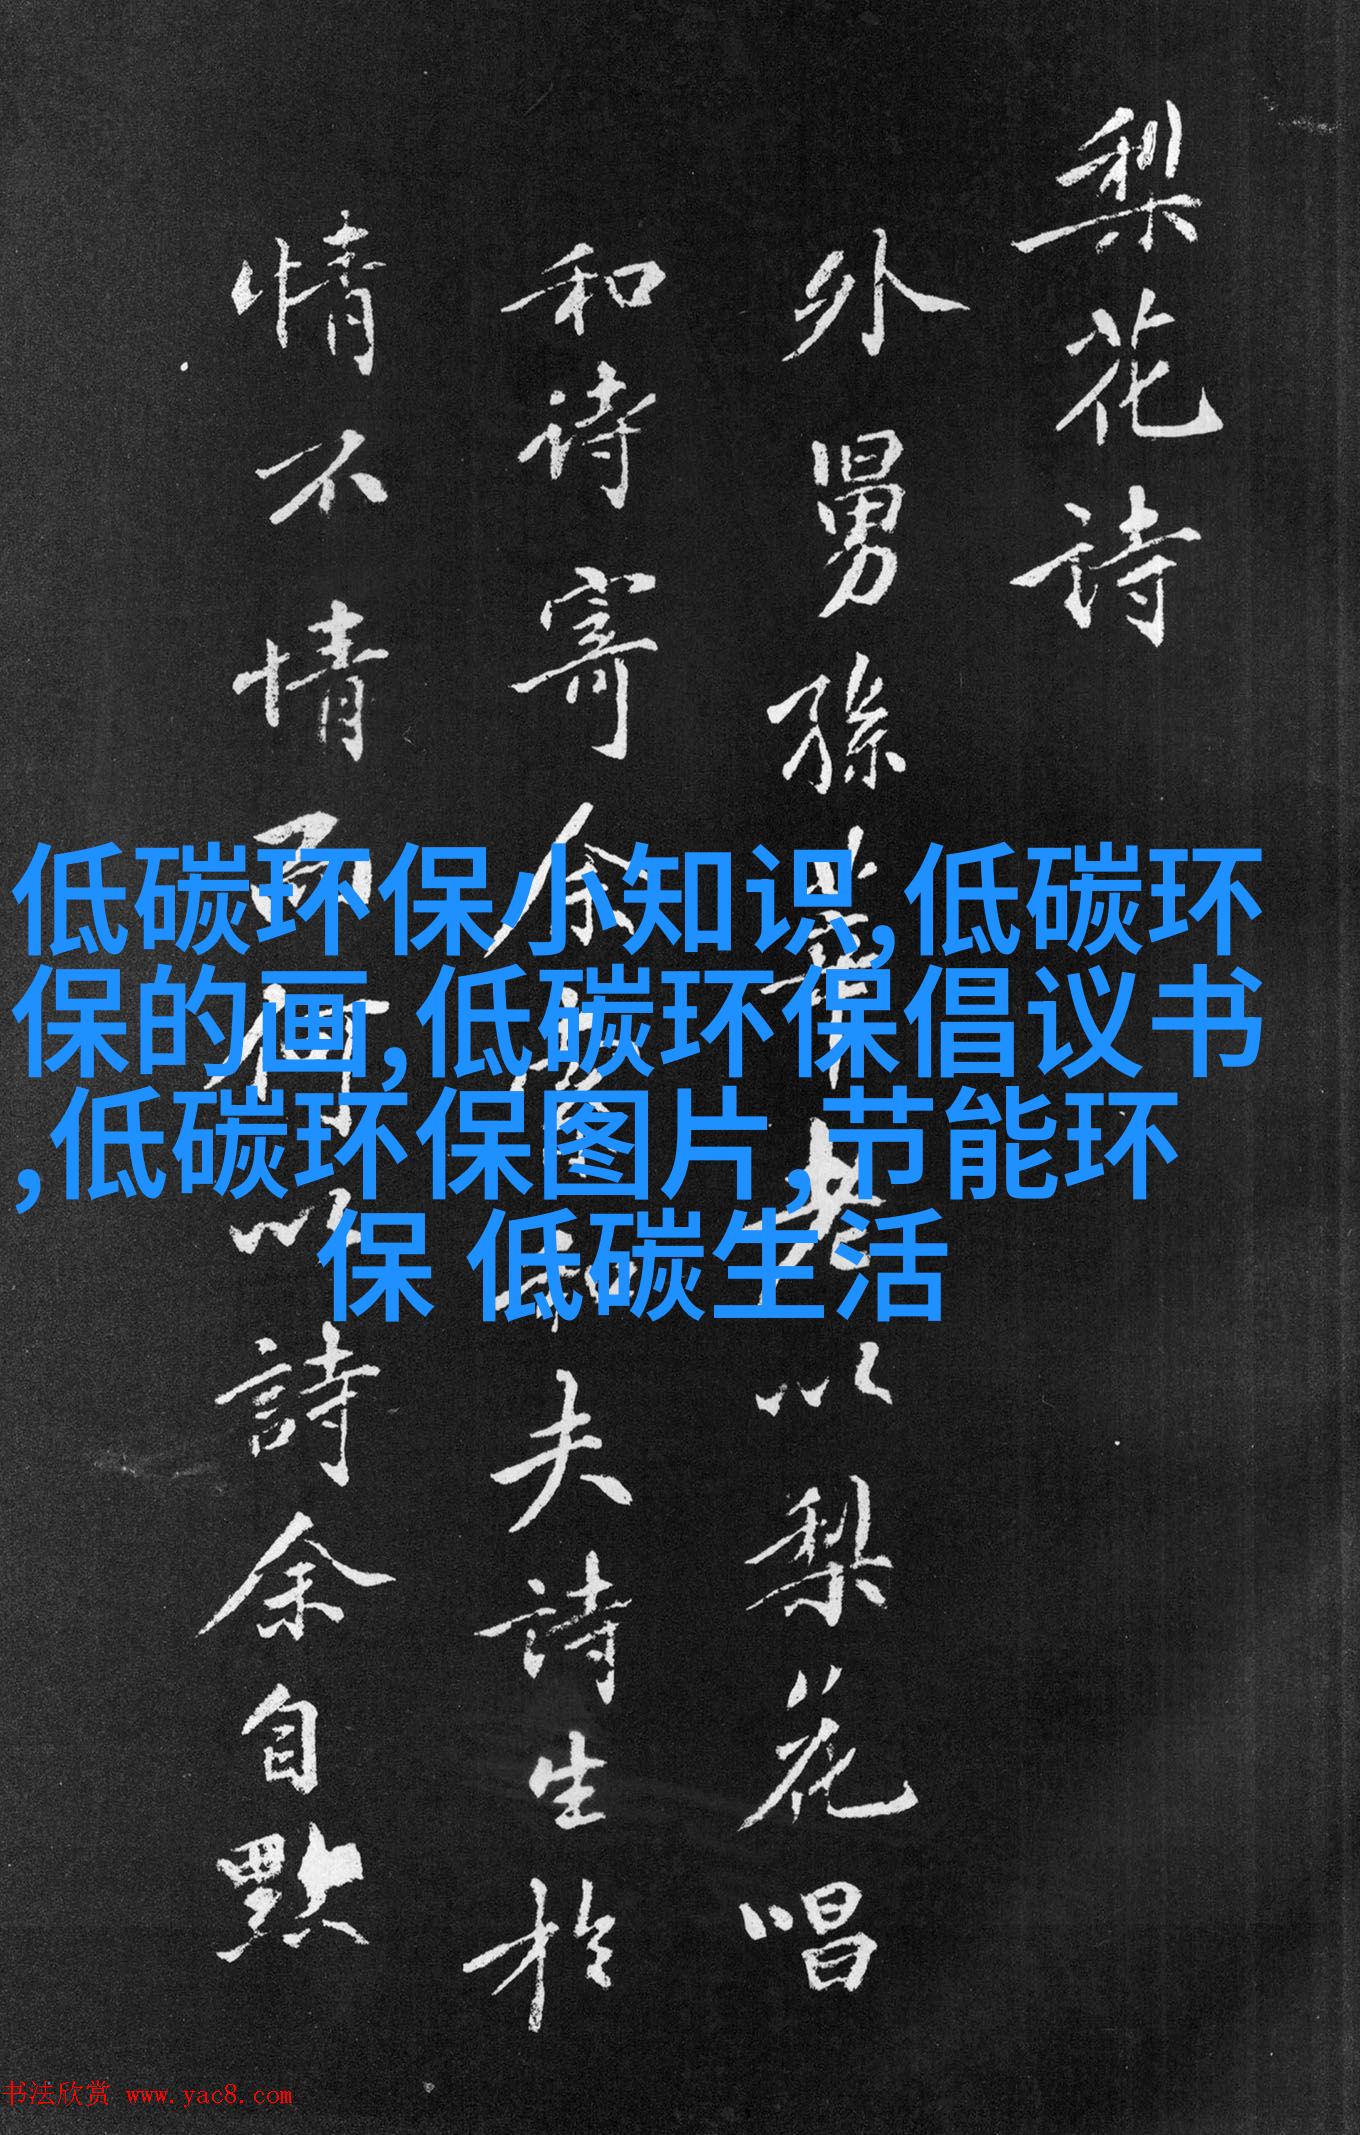 梨花诗
外舅孫莘老以梨花唱
和诗寄余度和夫詩生於
情不情而何以詩余自黙
低碳环保小知识,低碳环
保的画,低碳环保倡议书
,低碳环保图片,节能环
保 低碳生活
书法欣赏 www.yac8.com